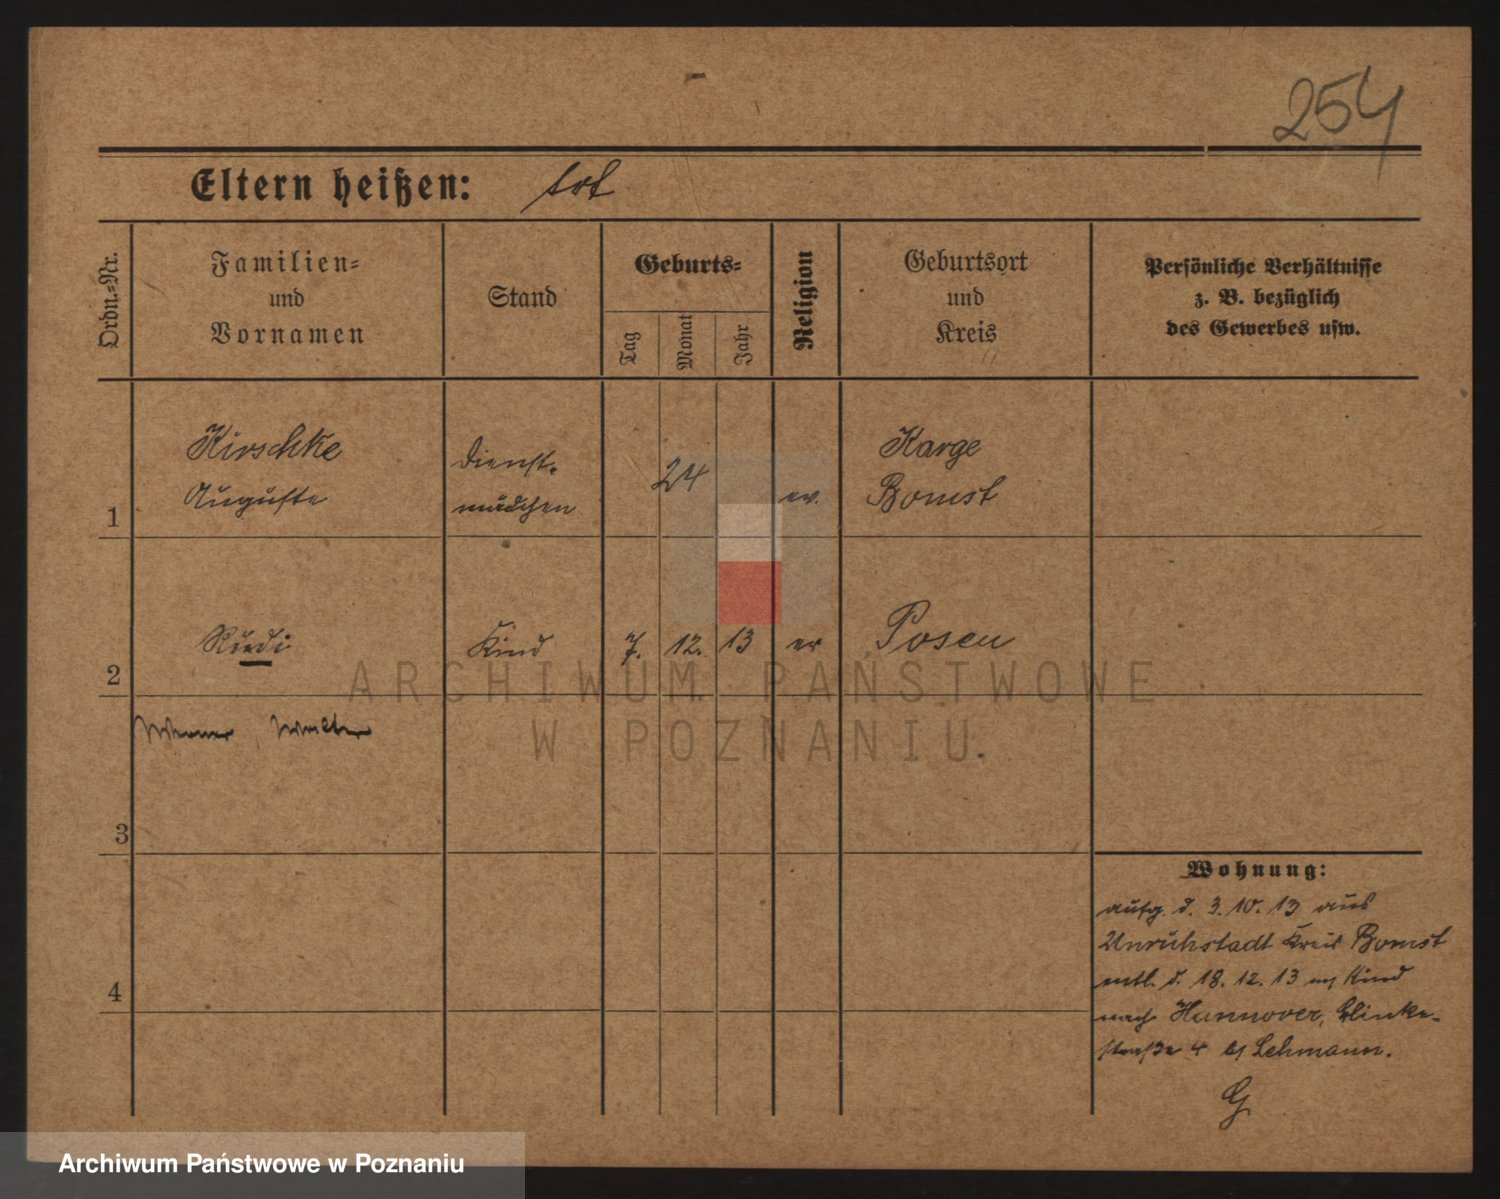 254
Eltern heißen: tot
Ordn.-Nr.
Familien-
und
Vornamen
Stand
Geburts-
Tag
Monat
Jahr
Religion
Geburtsort
und
Kreis
Persönliche Verhältnisse
z. B. bezüglich
des Gewerbes usw.
1
Kirschke
Auguste
Dienst-
mädchen
24
ev.
Karge
Bomst
2
Kind
7. 12. 13
ev
Posen
Werner Walter
3
4
Wohnung:
aufg. d. 3. 10. 13 aus
Unruhstadt Kreis Bomst
entl. d. 18. 12. 13 m/ Kind
nach Hannover, Glinke-
straße 4 b/ Lehmann.
G
ARCHIWUM PAŃSTWOWE
W POZNANIU
Archiwum Państwowe w Poznaniu